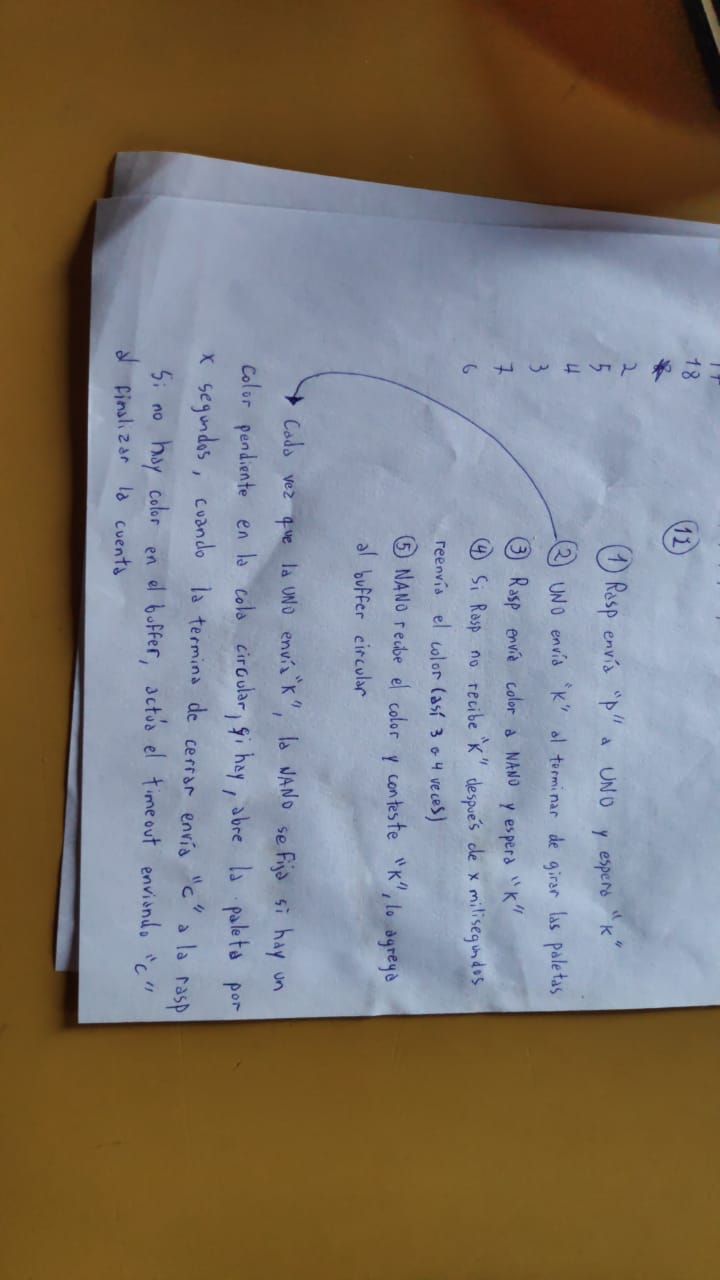 18
11
2
5
4
3
7
6
① Rasp envía "P" a UNO y espera "K"
② UNO envía "K" al terminar de girar las paletas
③ Rasp envía color a NANO y espera "K"
④ Si Rasp no recibe "K" después de x milisegundos
reenvía el color (así 3 o 4 veces)
⑤ NANO recibe el color y contesta "K", lo agrega
al buffer circular
Cada vez que la UNO envía "K", la NANO se fija si hay un
color pendiente en la cola circular, si hay, abre la paleta por
x segundos, cuando la termina de cerrar envía "C" a la rasp
Si no hay color en el buffer, actúa el timeout enviando "C"
al finalizar la cuenta